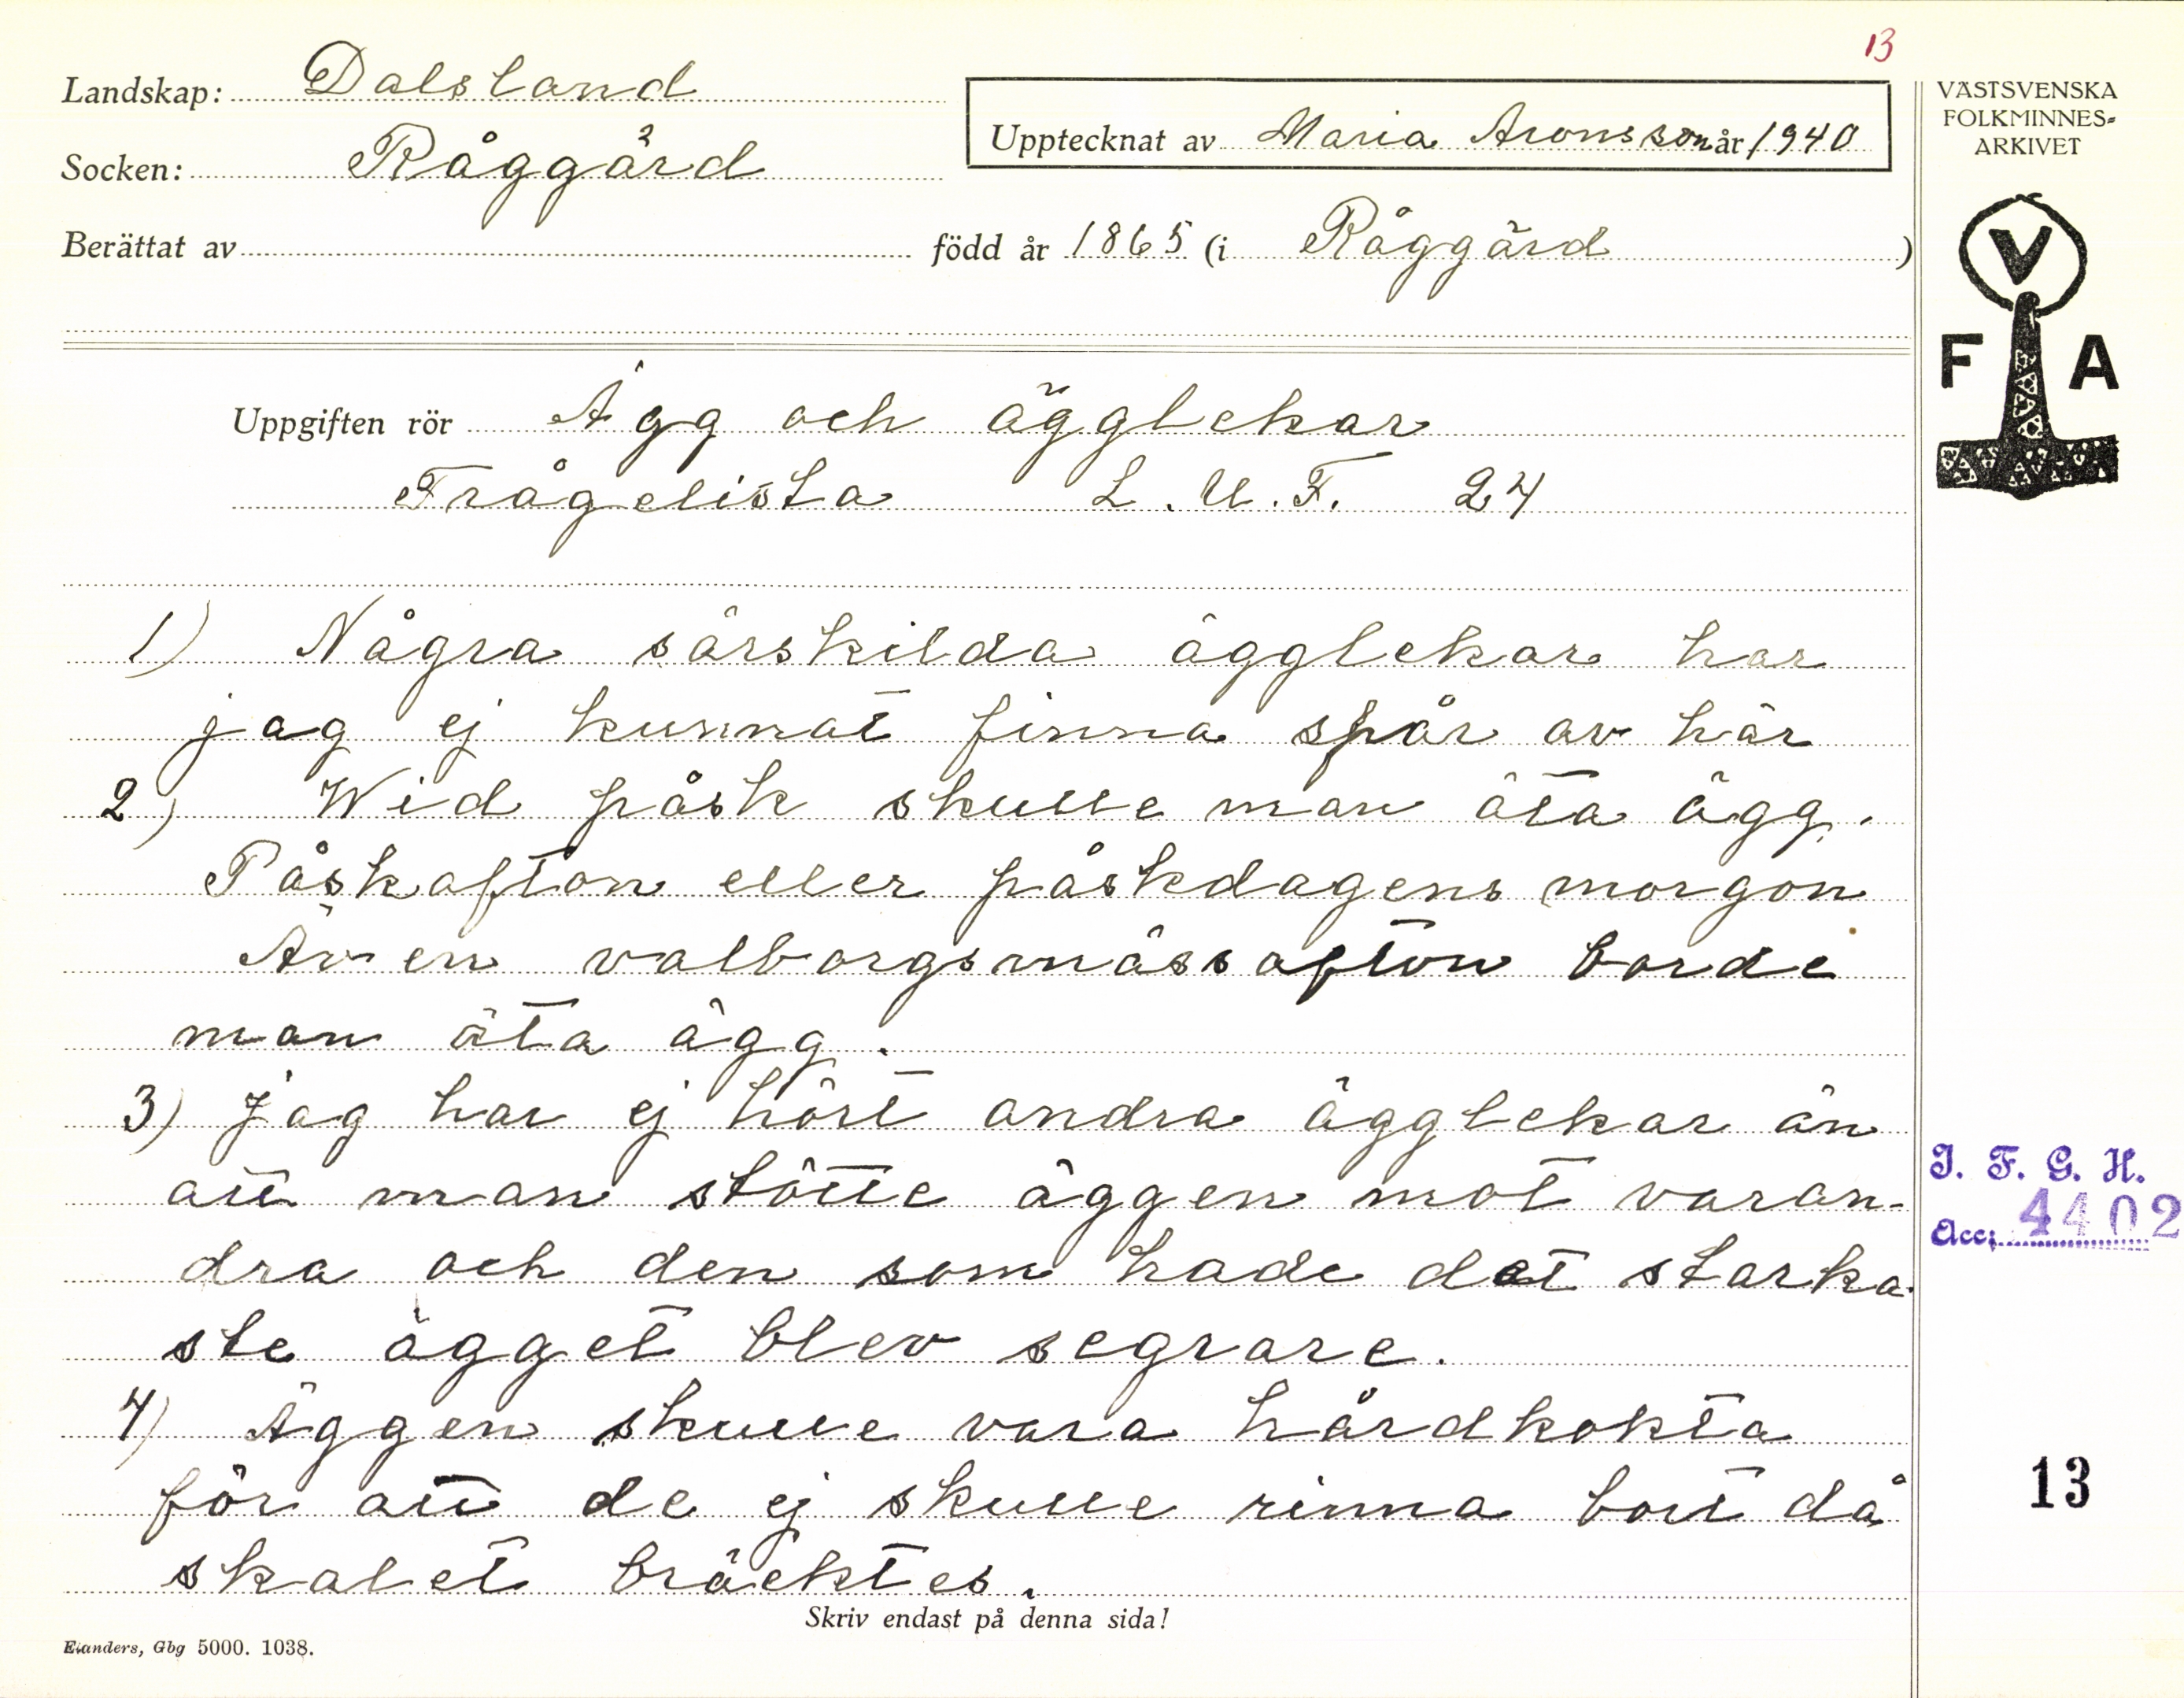 13
Landskap: Dalsland
Socken: Råggärd
Upptecknat av Maria Aronsson år 1940
Berättat av född år 1865 (i Råggärd )
VÄSTSVENSKA
FOLKMINNES-
ARKIVET
V
F A
Uppgiften rör Ägg och ägglekar
Frågelista L.U.F. 24
1) Några särskilda ägglekar har
jag ej kunnat finna spår av här
2) Wid påsk skulle man äta ägg.
Påskafton eller påskdagens morgon
Även valborgsmässafton borde
man äta ägg.
3) Jag har ej hört andra ägglekar än
att man stötte äggen mot varan-
dra och den som hade det starka-
ste ägget blev segrare.
4) Äggen skulle vara hårdkokta
för att de ej skulle rinna bort då
skalet bräcktes.
I. F. G. H.
Acc: 4402
13
Skriv endast på denna sida!
Elanders, Gbg 5000. 1038.